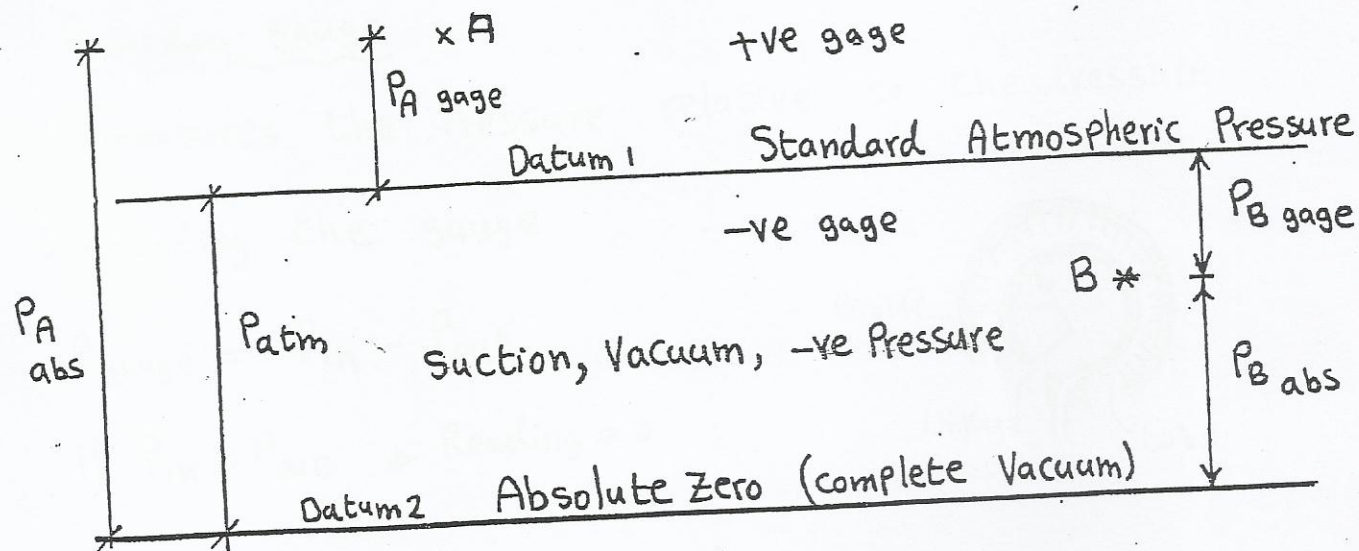 × A +ve gage
P_A gage
Datum 1 Standard Atmospheric Pressure
-ve gage
P_B gage
B *
P_A abs
Patm
Suction, Vacuum, -ve Pressure
P_B abs
Datum 2 Absolute Zero (complete Vacuum)